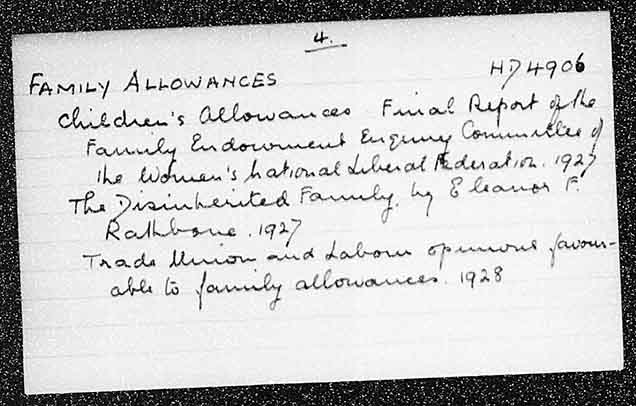 4.
FAMILY ALLOWANCES HD 4906
Children's Allowances Final Report of the
Family Endowment Enquiry Committee of
the Women's National Liberal Federation. 1927
The Disinherited Family, by Eleanor F.
Rathbone. 1927
Trade Union and Labour opinions favour-
able to family allowances. 1928